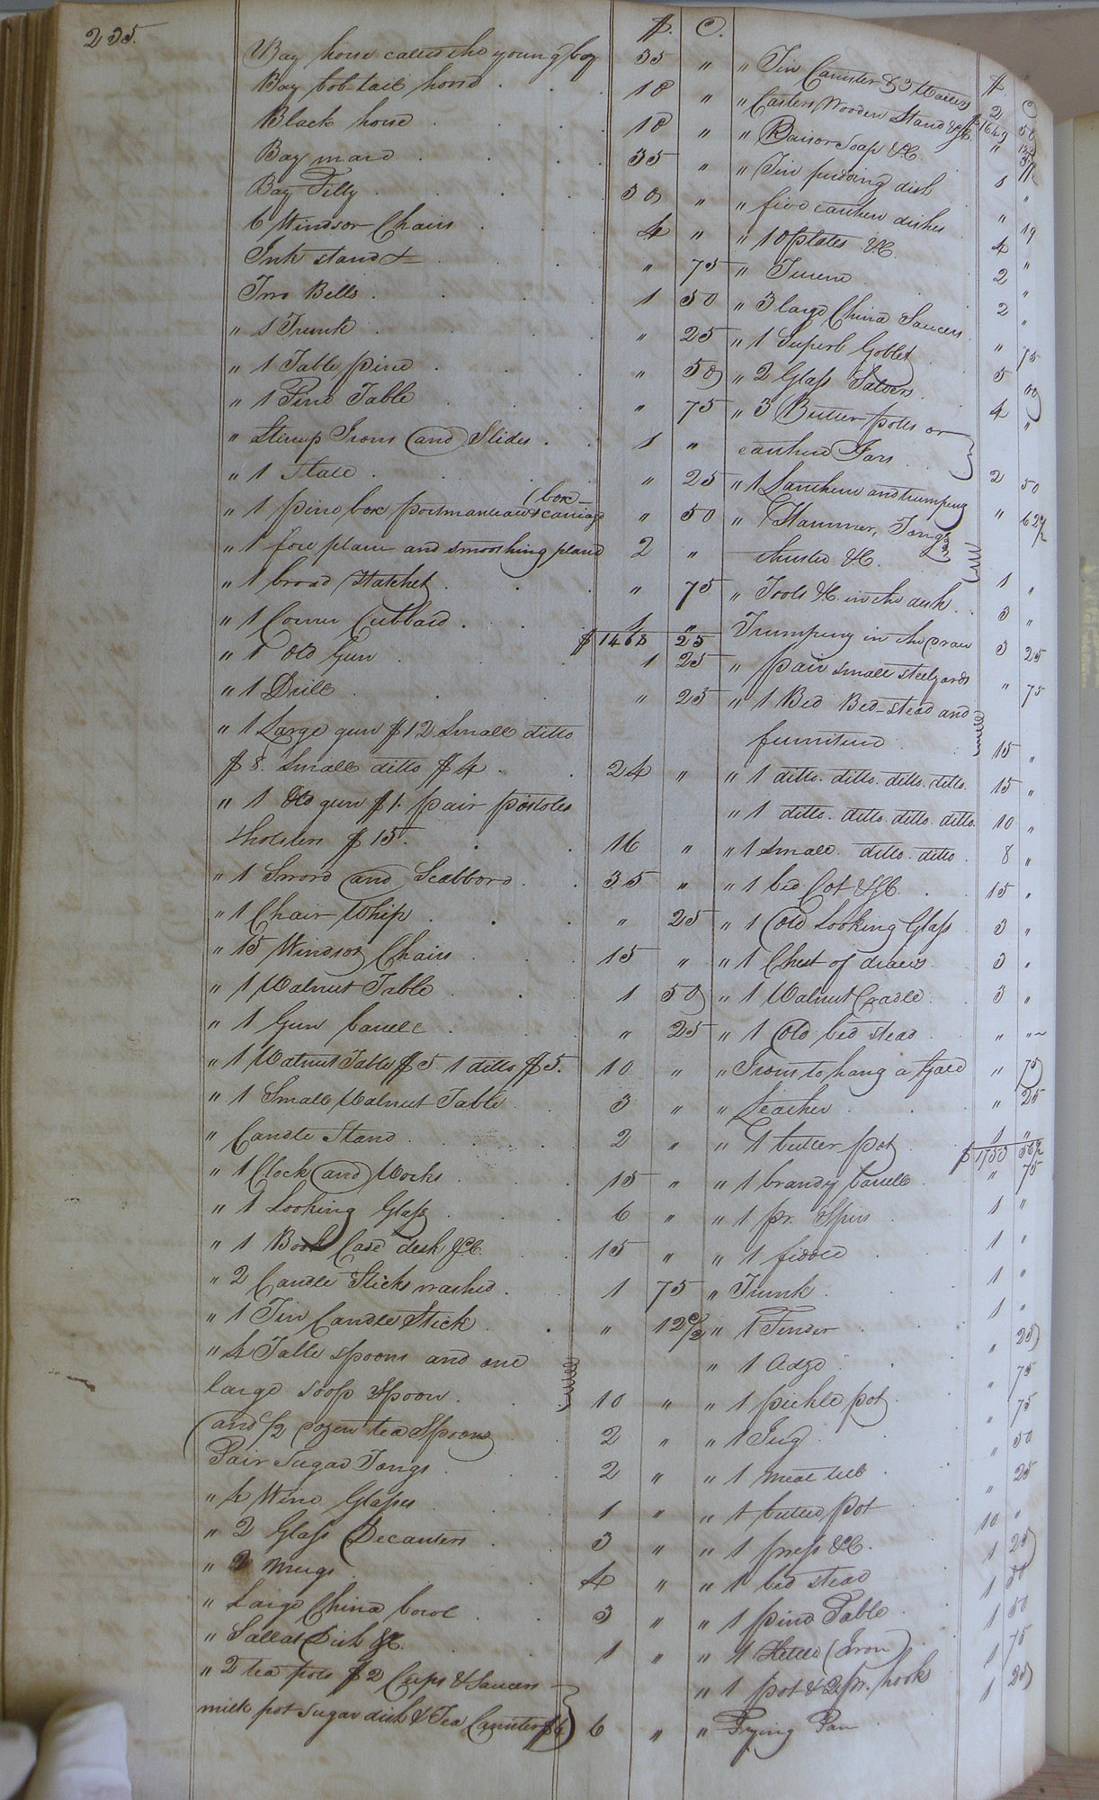 235.
$. C.
Bay horse called the young boy 35 "
Bay bob tail horse 18 "
Black horse 18 "
Bay mare 35 "
Bay Filly 30 "
6 Windsor Chairs 4 "
Ink stand & " 75
Two Bells 1 50
" 1 Trunk " 25
" 1 Table pine " 50
" 1 Pine Table " 75
" Stirrup Irons and Slides 1 "
" 1 Slate " 25
" 1 pine box portmanteau & carriage box " 50
" 1 fore plane and smoothing plane 2 "
" 1 broad Hatchet " 75
" 1 Corner Cubbard
$1468 25
" 1 Old Gun 1 25
" 1 Drill " 25
" 1 Large gun $12 Small ditto
$8. Small ditto $4 24 "
" 1 Old gun $1. pair pistoles
& holsters $15. 16 "
" 1 Sword and Scabbord 35 "
" 1 Chair Whip " 25
" 15 Windsor Chairs 15 "
" 1 Walnut Table 1 50
" 1 Gun barrell " 25
" 1 Walnut Table $5 1 ditto $5. 10 "
" 1 Small Walnut Table 3 "
" Candle Stand 2 "
" 1 Clock and Works 15 "
" 1 Looking Glass 6 "
" 1 Book Case desk &C 15 "
" 2 Candle Sticks washed 1 75
" 1 Tin Candle Stick " 12 1/2
" 4 Table spoons and one
large soop spoon 10 "
and 1/2 dozen tea Spoons 2 "
Pair Sugar Tongs 2 "
" 4 Wine Glasses 1 "
" 2 Glass Decanters 3 "
" 2 Mugs 4 "
" Large China bowl 3 "
" Sallat Dish &C. 1 "
" 2 tea pots $2 Cups & Saucers
milk pot Sugar dish & Tea Cannister $6 6 "
$ C
" Tin Canister & 3 Waiters 2
" Casters Wooden Stand &C. $1649
" Raisor Soap &C
" Tin pudding dish
" five earthen dishes " 19
" 10 plates &C 4 "
" Tureen 2 "
" 3 large China Saucers 2 "
" 1 Superb Goblet " 75
" 2 Glass Salvers 5
" 3 Butter potts or
earthen Jars 4 "
" 1 Lanthern and trumpery 2 50
" Hammer, Tongs " 62 1/2
&C. 1 "
" Tools &C in the desk 3 "
Trumpery in the draw 3 25
" pair small steelyards " 75
" 1 Bed Bed-stead and
furniture 15 "
" 1 ditto. ditto. ditto. ditto. 15 "
" 1 ditto. ditto. ditto. ditto. 10 "
" 1 Small ditto. ditto 8 "
" 1 bed Cot &C 15 "
" 1 Old Looking Glass 3 "
" 1 Chest of draws 3 "
" 1 Walnut Cradle 3 "
" 1 Old bed stead " "
" Irons to hang a Gate " 75
" Leather " 25
" 1 butter pot 1 "
" 1 brandy barrell " 75
" 1 pr. Spurs 1 "
" 1 fiddle 1 "
" Trunk 1 "
" 1 Fender 1 "
" 1 Adze " 25
" 1 pickle pot " 75
" 1 Jug " 75
" 1 meal tub " 50
" 1 butter pot " 25
" 1 press &C. 10 "
" 1 bed stead 1 25
" 1 pine Table 1 50
" 1 Kettle (Iron) 1 50
" 1 pot & pr. hook 1 75
" Frying Pan 1 25